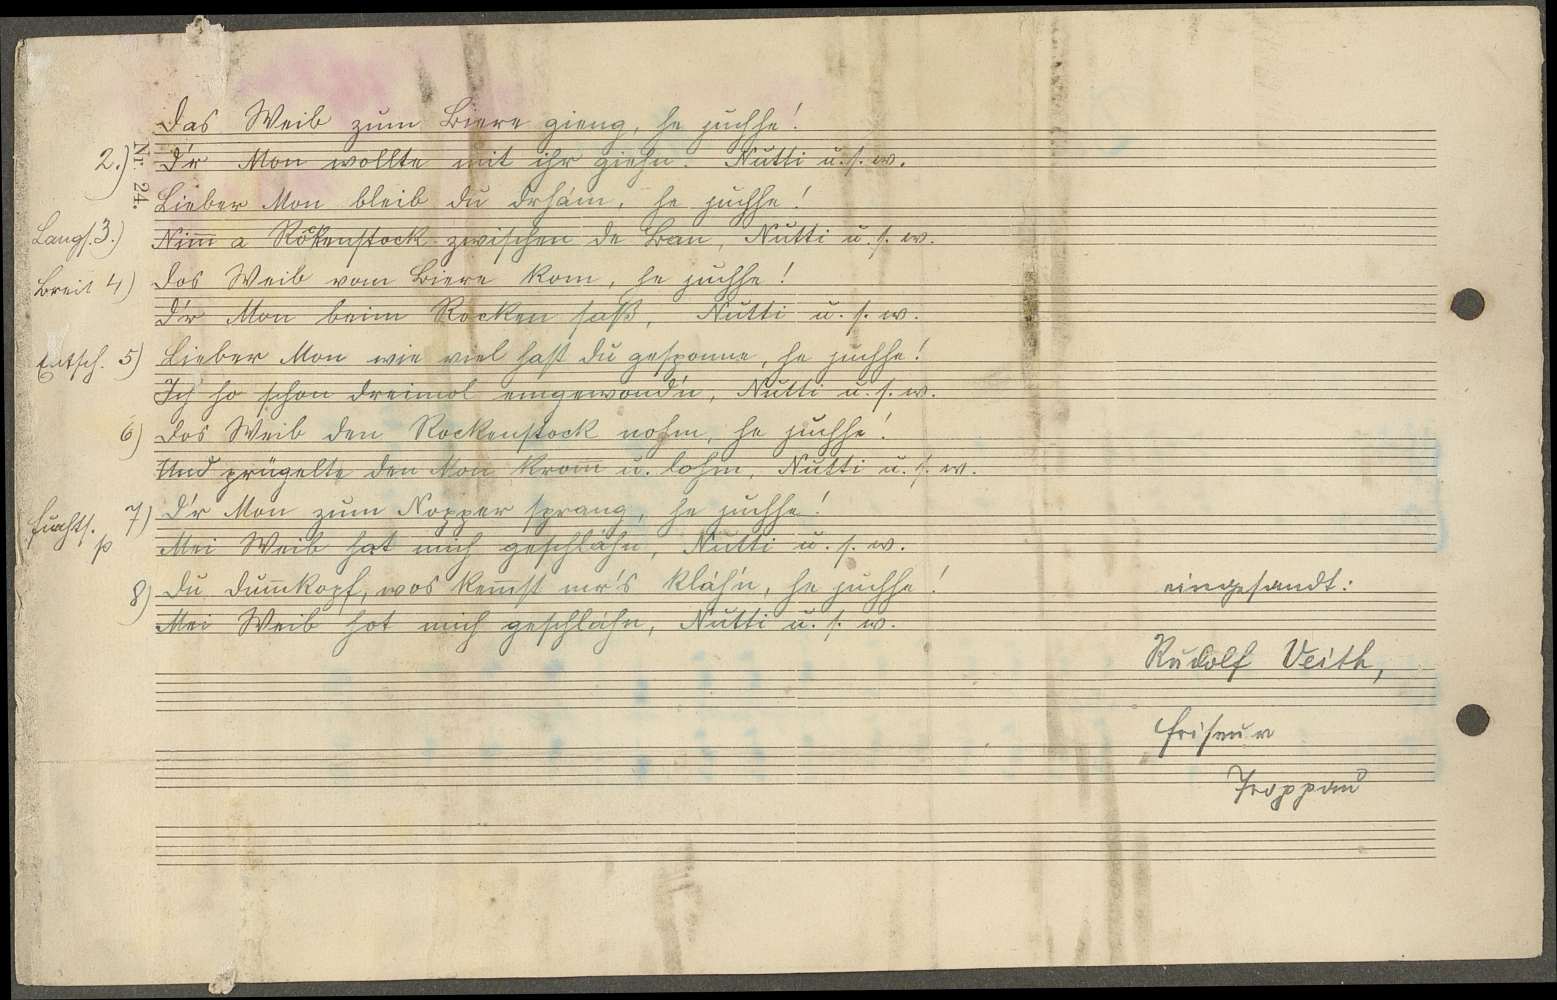 Das Weib zum Biere gieng, he juchhe!
2.) D'r Mon wollte mit ihr giehn. Nutti u. s. w.
Nr. 24.
Lieber Mon bleib du drhám, he juchhe!
Langs. 3.) Nim̄ a Rockenstock zwischen de Ban, Nutti u. s. w.
Breit 4) Dos Weib vom Biere kom, he juchhe!
D'r Mon beim Rocken saß, Nutti u. s. w.
Entsch. 5) Lieber Mon wie viel hast du gesponne, he juchhe!
Ich ho schon dreimol eingewond'n, Nutti u. s. w.
6) Dos Weib den Rockenstock nohm, he juchhe!
Und prügelte den Mon krom̄ u. lohm, Nutti u. s. w.
7) D'r Mon zum Nopper sprang, he juchhe!
p Mei Weib hat mich geschláhn, Nutti u. s. w.
8) Du Dum̄kopf, wos kem̄st mr's kláh'n, he juchhe!
Mei Weib hot mich geschláhn, Nutti u. s. w.
eingesandt:
Rudolf Veith,
Friseur
Troppau